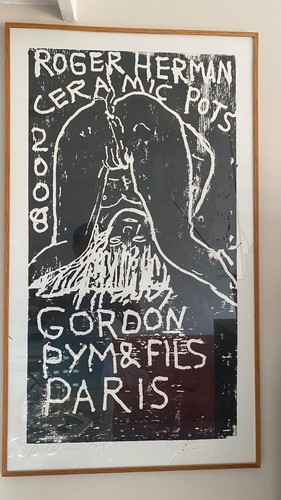 ROGER HERMAN
CERAMIC POTS
2008
GORDON
PYM & FILS
PARIS